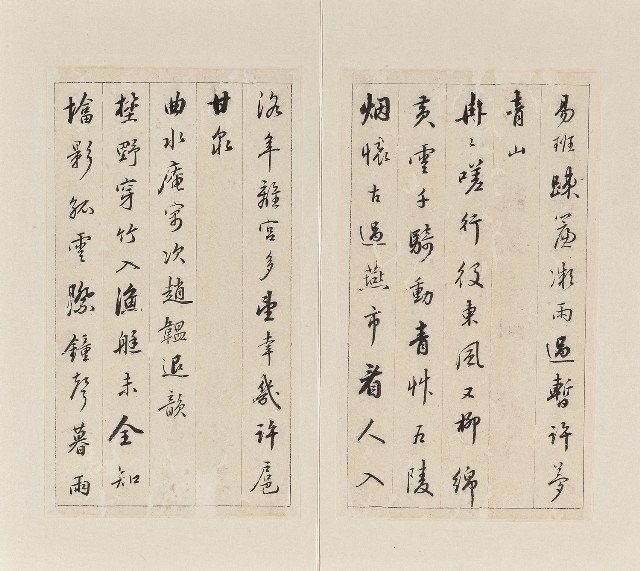 易班踈簾凝雨過暫許夢
青山
冉〻嗟行役東風又柳綿
黄雲千騎動青艸五陵
烟懷古過燕市看人入
洛年離宮多望幸幾許扈
甘泉
曲水庵寓次趙韞退韻
野穿竹入漁艇未全知
墖影孤雲際鐘聲暮雨